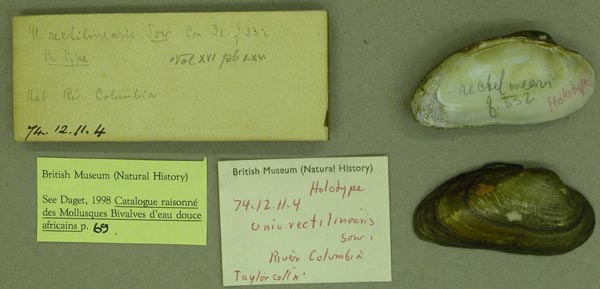 U. rectilinearis. Sow Con Ic. f 332
the type
Vol XVI pl. LXV.
Hab. Riv. Columbia
74.12.11.4
rectilineari
f. 332
Holotype
British Museum (Natural History)
See Daget, 1998 Catalogue raisonné
des Mollusques Bivalves d'eau douce
africains p. 69.
British Museum (Natural History)
Holotype
74.12.11.4
Unio rectilinearis
Sow.
River Columbia
Taylor colln.